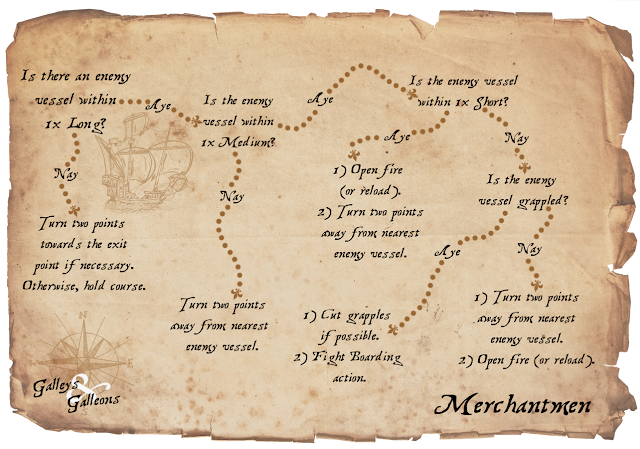 Is there an enemy
vessel within
1x Long?
Aye
Nay
Turn two points
towards the exit
point if necessary.
Otherwise, hold course.
Is the enemy
vessel within
1x Medium?
Aye
Nay
Turn two points
away from nearest
enemy vessel.
Is the enemy vessel
within 1x Short?
Aye
Nay
1) Open fire
(or reload).
2) Turn two points
away from nearest
enemy vessel.
Is the enemy
vessel grappled?
Aye
Nay
1) Cut grapples
if possible.
2) Fight Boarding
action.
1) Turn two points
away from nearest
enemy vessel.
2) Open fire (or reload).
N
Galleys
&
Galleons
Merchantmen